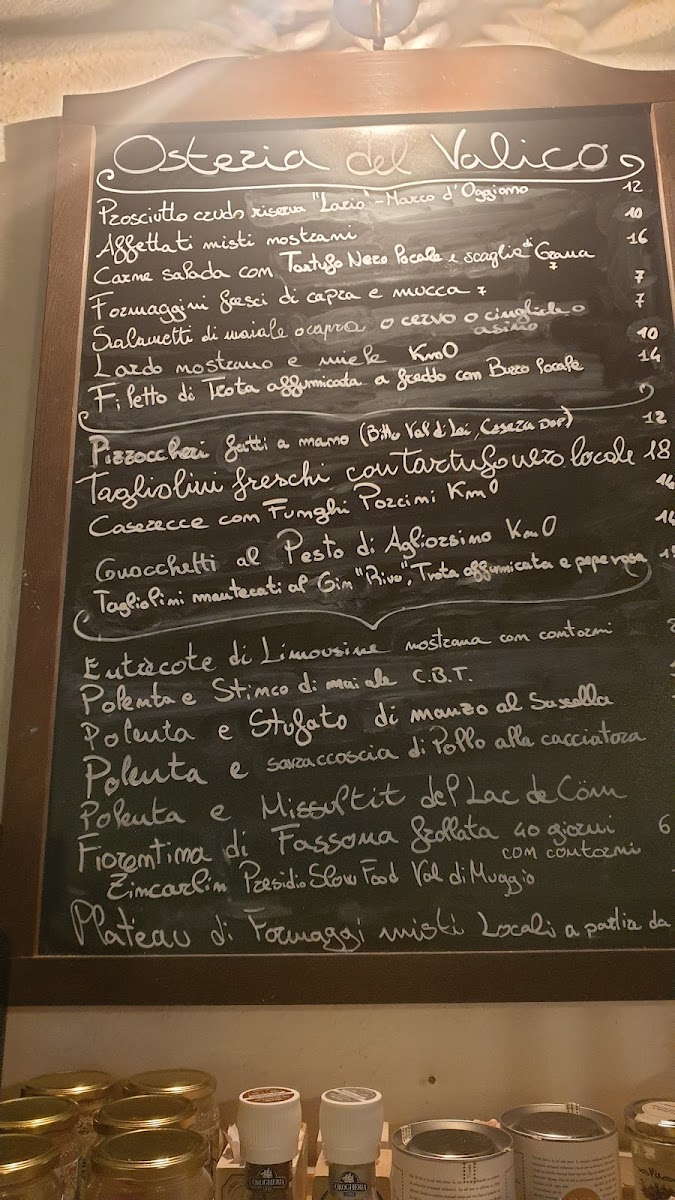 Osteria del Valico
Prosciutto crudo riserva "Lario" - Marco d'Oggiono 12
Affettati misti nostrani 10
Carne salada con Tartufo Nero locale e scaglie di Grana 16
Formaggini fresci di capra e mucca 7 7
Salametti di maiale o capra o cervo o cinghiale o asino 7
Lardo nostrano e miele Km0 10
Filetto di Trota affumicata a freddo con Burro locale 14
Pizzoccheri fatti a mano (Bitto Val di Lei, Casera DOP) 12
Tagliolini freschi con tartufo nero locale 18
Caserecce con Funghi Porcini Km0
Gnocchetti al Pesto di Agliorsino Km0
Tagliolini mantecati al Gin "Rivo", Trota affumicata e pepe rosa
Entrecote di Limousine nostrana con contorni
Polenta e Stinco di maiale C.B.T.
Polenta e Stufato di manzo al Sassella
Polenta e sovraccoscia di Pollo alla cacciatora
Polenta e Missultit del Lac de Cömm
Fiorentina di Fassona frollata 40 giorni 6
con contorni
Zincarlin Presidio Slow Food Val di Muggio
Plateau di Formaggi misti Locali a partire da
DROGHERIA